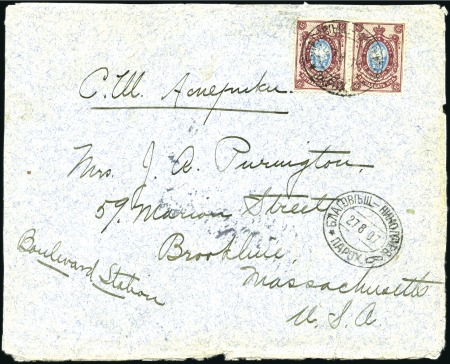 С.Ш. Америки.
Mrs. J. A. Purington,
59. Marion Street
Brookline,
Massachusetts
U. S. A
Boulevard Station
БЛАГОВѢЩ-
ПАРОХ.
27 8 0